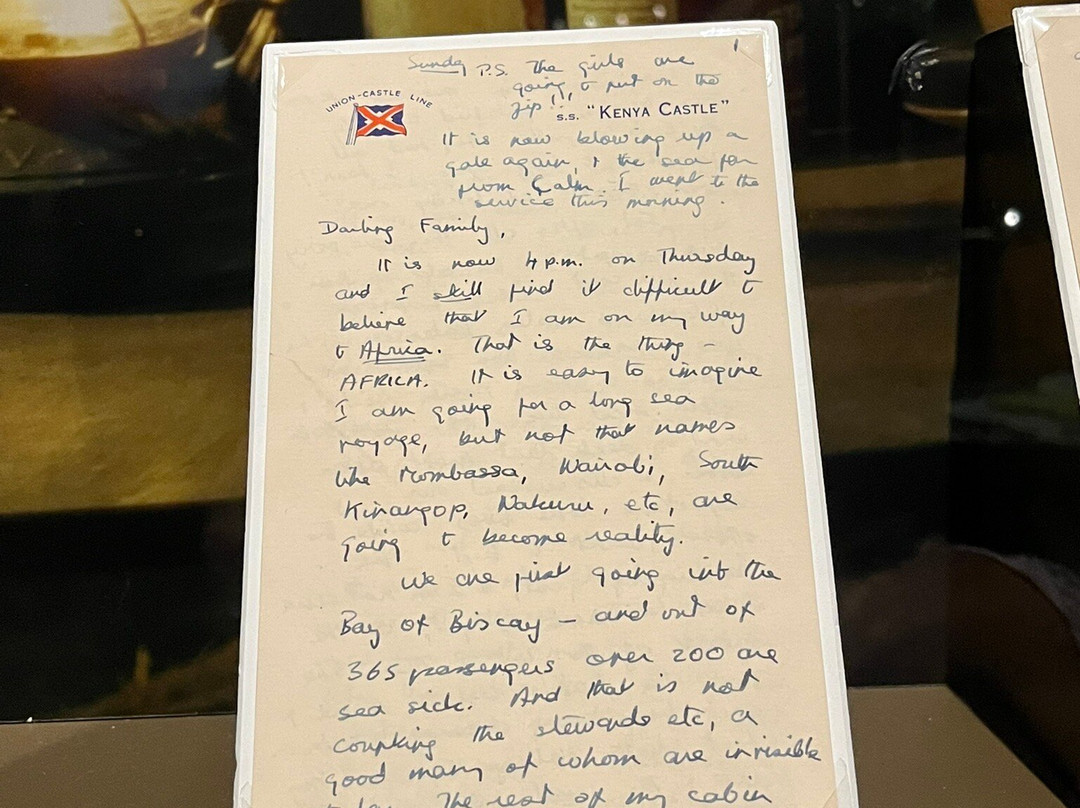 1
Sunday P.S. The girls are
going to put on the
zip!!!
UNION-CASTLE LINE
S.S. "KENYA CASTLE"
It is now blowing up a
gale again, & the sea far
from calm. I went to the
service this morning.
Darling Family,
It is now 4 p.m. on Thursday
and I still find it difficult to
believe that I am on my way
to Africa. That is the thing –
AFRICA. It is easy to imagine
I am going for a long sea
voyage, but not that names
like Mombassa, Nairobi, South
Kinangop, Nakuru, etc, are
going to become reality.
We are just going into the
Bay of Biscay – and out of
365 passengers over 200 are
sea sick. And that is not
counting the stewards etc, a
good many of whom are invisible
today. The rest of my cabin